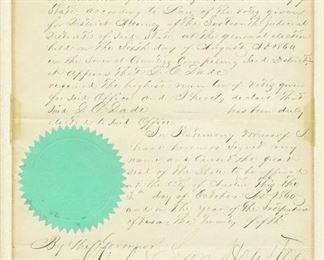 State according to Law of the votes given
for District Attorney of the Sixteenth Judicial
District of Said State, at the general election
held on the Sixth day of August, AD 1860
in the Several Counties Composing Said District
it Appears that D. O. Dade
received the highest number of Votes given
for Said Office, and I hereby declare the
Said D. O. Dade has been duly
elected to Said Office
In Testimony Whereof I
have hereunto Signed my
name and Caused the great
Seal of the State to be affixed
at the City of Austin this the
day of October AD 1860
and in the year of the Independence
of Texas the Twenty fifth
By the Governor